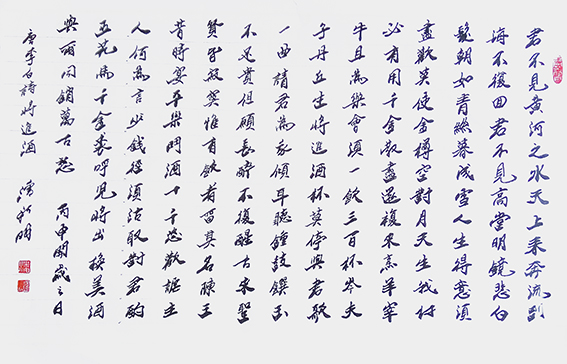 君不見黄河之水天上来奔流到
海不復回君不見高堂明鏡悲白
髮朝如青絲暮成雪人生得意須
盡歡莫使金樽空對月天生我材
必有用千金散盡還復来烹羊宰
牛且為樂會須一飲三百杯岑夫
子丹丘生将進酒杯莫停與君歌
一曲請君為我傾耳聽鐘鼓饌玉
不足貴但願長醉不復醒古来聖
賢皆寂寞惟有飲者留其名陳王
昔時宴平樂鬥酒十千恣歡謔主
人何為言少錢徑須沽取對君酌
五花馬千金裘呼兒将出換美酒
與爾同銷萬古愁 丙申開歲之日
唐李白詩将進酒